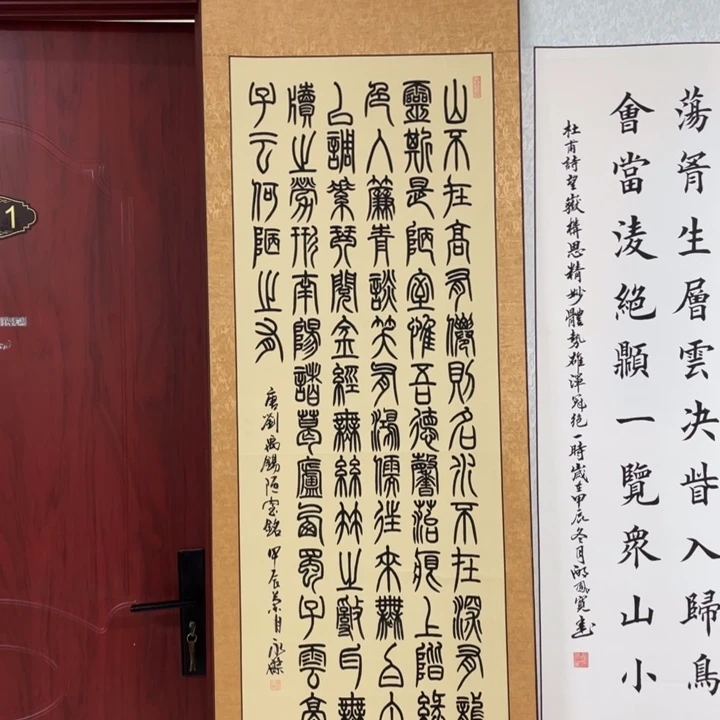 1
山不在高有僊則名水不在深有龍
靈斯是陋室惟吾德馨苔痕上階綠
色入簾青談笑有鴻儒往來無白丁
以調素琴閱金經無絲竹之亂耳無
牘之勞形南陽諸葛廬西蜀子雲亭
子云何陋之有
唐劉禹錫陋室銘 甲辰
蕩胷生層雲決眥入歸鳥
會當淩絕顛一覽眾山小
杜甫詩望嶽構思精妙體勢雄渾冠絕一時歲在甲辰冬月